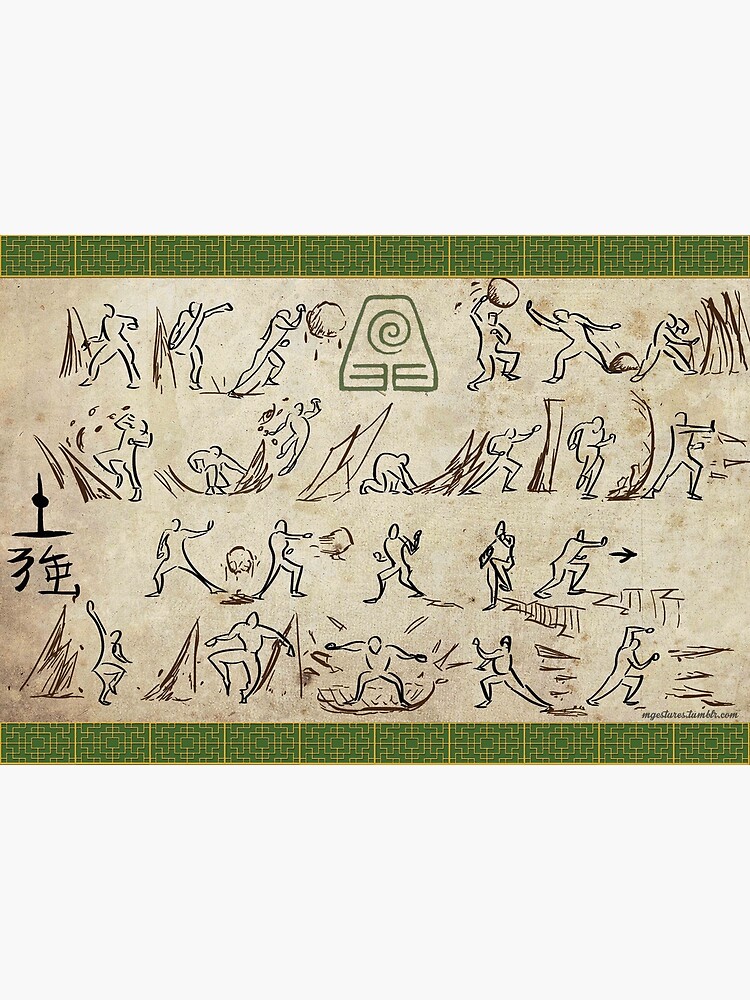 土
強
mgestures.tumblr.com